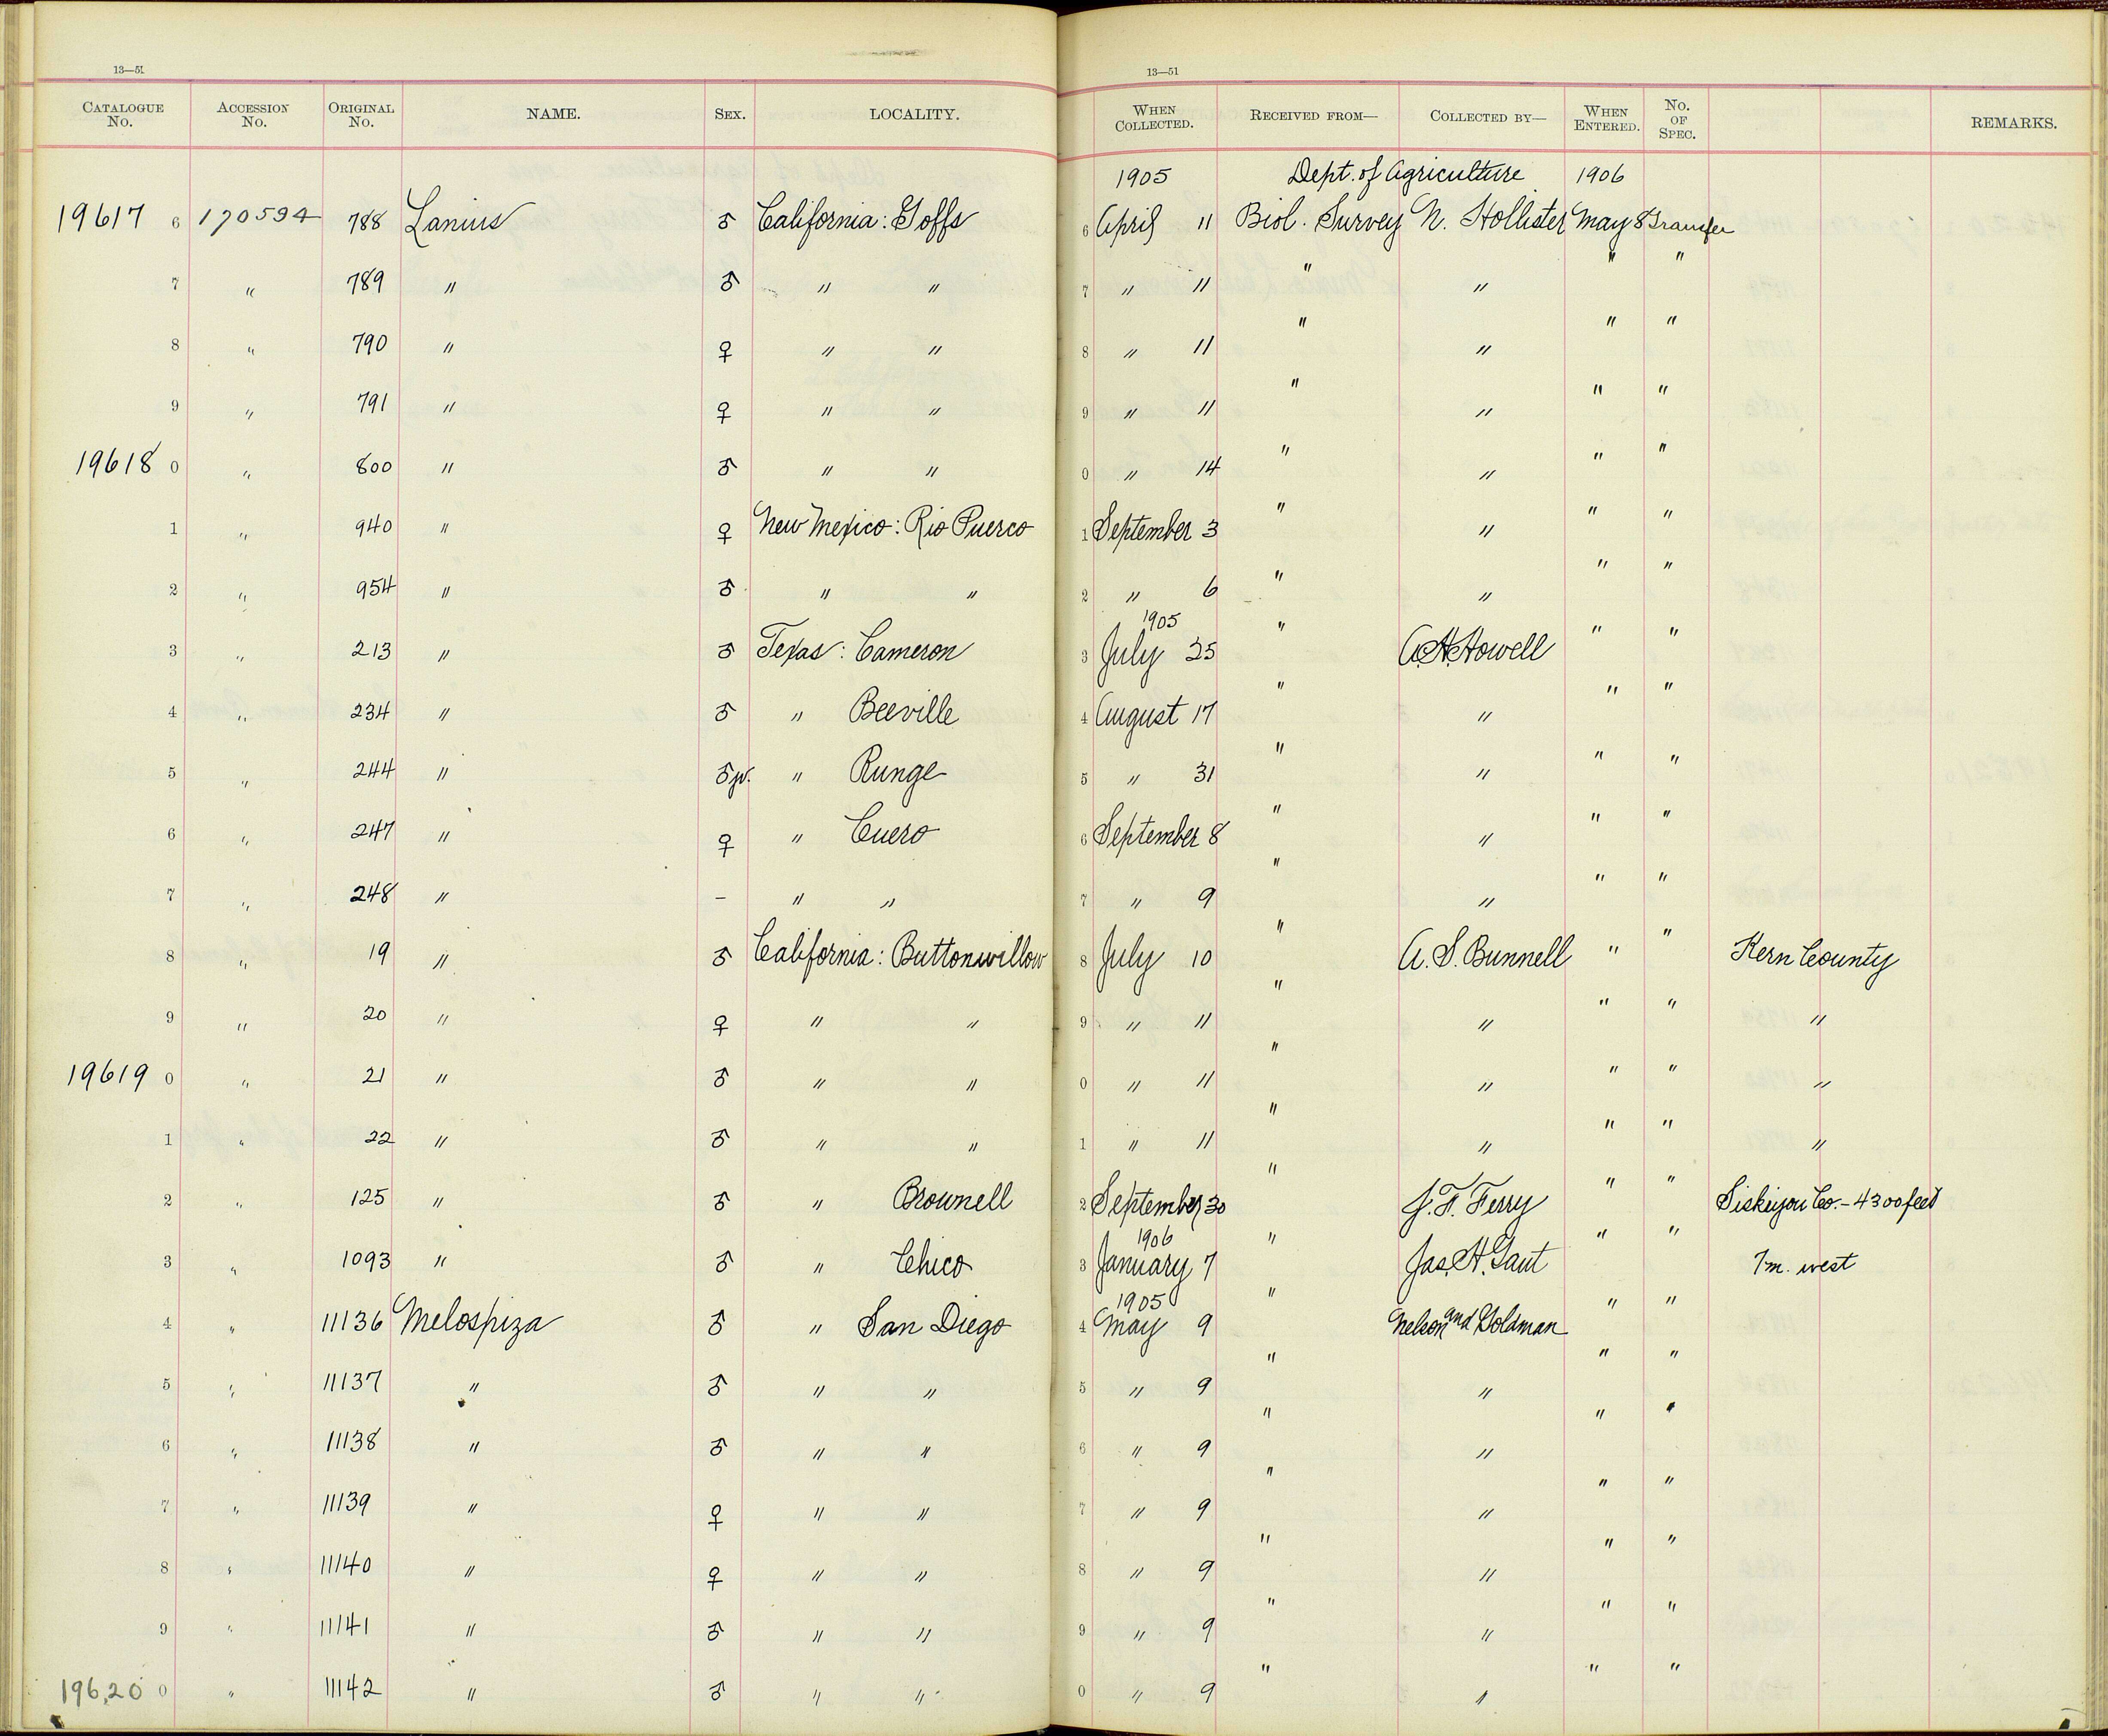 13—51 13—51
CATALOGUE No. ACCESSION No. ORIGINAL No. NAME. SEX. LOCALITY. WHEN COLLECTED. RECEIVED FROM— COLLECTED BY— WHEN ENTERED. No. OF SPEC. REMARKS.
1905 Dept. of Agriculture 1906
19617 6 170594 788 Lanius ♂ California: Goffs 6 April 11 Biol. Survey N. Hollister May 8 Transfer
7 " 789 " ♂ " " 7 " 11 " " " "
8 " 790 " ♀ " " 8 " 11 " " " "
9 " 791 " ♀ " " 9 " 11 " " " "
19618 0 " 800 " ♂ " " 0 " 14 " " " "
1 " 940 " ♀ New Mexico: Rio Puerco 1 September 3 " " " "
2 " 954 " ♂ " " 2 " 6 " " " "
1905
3 " 213 " ♂ Texas: Cameron 3 July 25 " A.H. Howell " "
4 " 234 " ♂ " Beeville 4 August 17 " " " "
5 " 244 " ♂ jv. " Runge 5 " 31 " " " "
6 " 247 " ♀ " Cuero 6 September 8 " " " "
7 " 248 " – " " 7 " 9 " " " "
8 " 19 " ♂ California: Buttonwillow 8 July 10 " A. S. Bunnell " " Kern County
9 " 20 " ♀ " " 9 " 11 " " " " "
19619 0 " 21 " ♂ " " 0 " 11 " " " " "
1 " 22 " ♂ " " 1 " 11 " " " " "
2 " 125 " ♂ " Brownell 2 September 30 " J. F. Ferry " " Siskiyou Co. – 4300 feet
1906
3 " 1093 " ♂ " Chico 3 January 7 " Jas. H. Gaut " " 7 m. west
1905
4 " 11136 Melospiza ♂ " San Diego 4 May 9 " Nelson and Goldman " "
5 " 11137 " ♂ " " 5 " 9 " " " "
6 " 11138 " ♂ " " 6 " 9 " " " "
7 " 11139 " ♀ " " 7 " 9 " " " "
8 " 11140 " ♀ " " 8 " 9 " " " "
9 " 11141 " ♂ " " 9 " 9 " " " "
19620 0 " 11142 " ♂ " " 0 " 9 " " " "